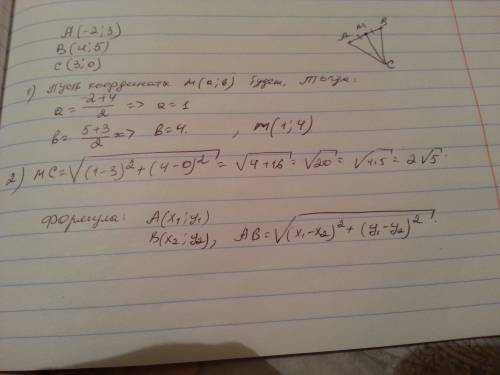 A(-2;3)
B(4;5)
C(3;0)
A M B
C
1) Пусть координаты M(a;b) будет, тогда:
a = \frac{2+4}{2} => a = 1
b = \frac{5+3}{2} => b = 4. , m(1;4)
2) MC = \sqrt{(1-3)^2 + (4-0)^2} = \sqrt{4+16} = \sqrt{20} = \sqrt{4.5} = 2\sqrt{5}.
формула: A(x_1; y_1)
B(x_2; y_2), AB = \sqrt{(x_1-x_2)^2 + (y_1-y_2)^2}.